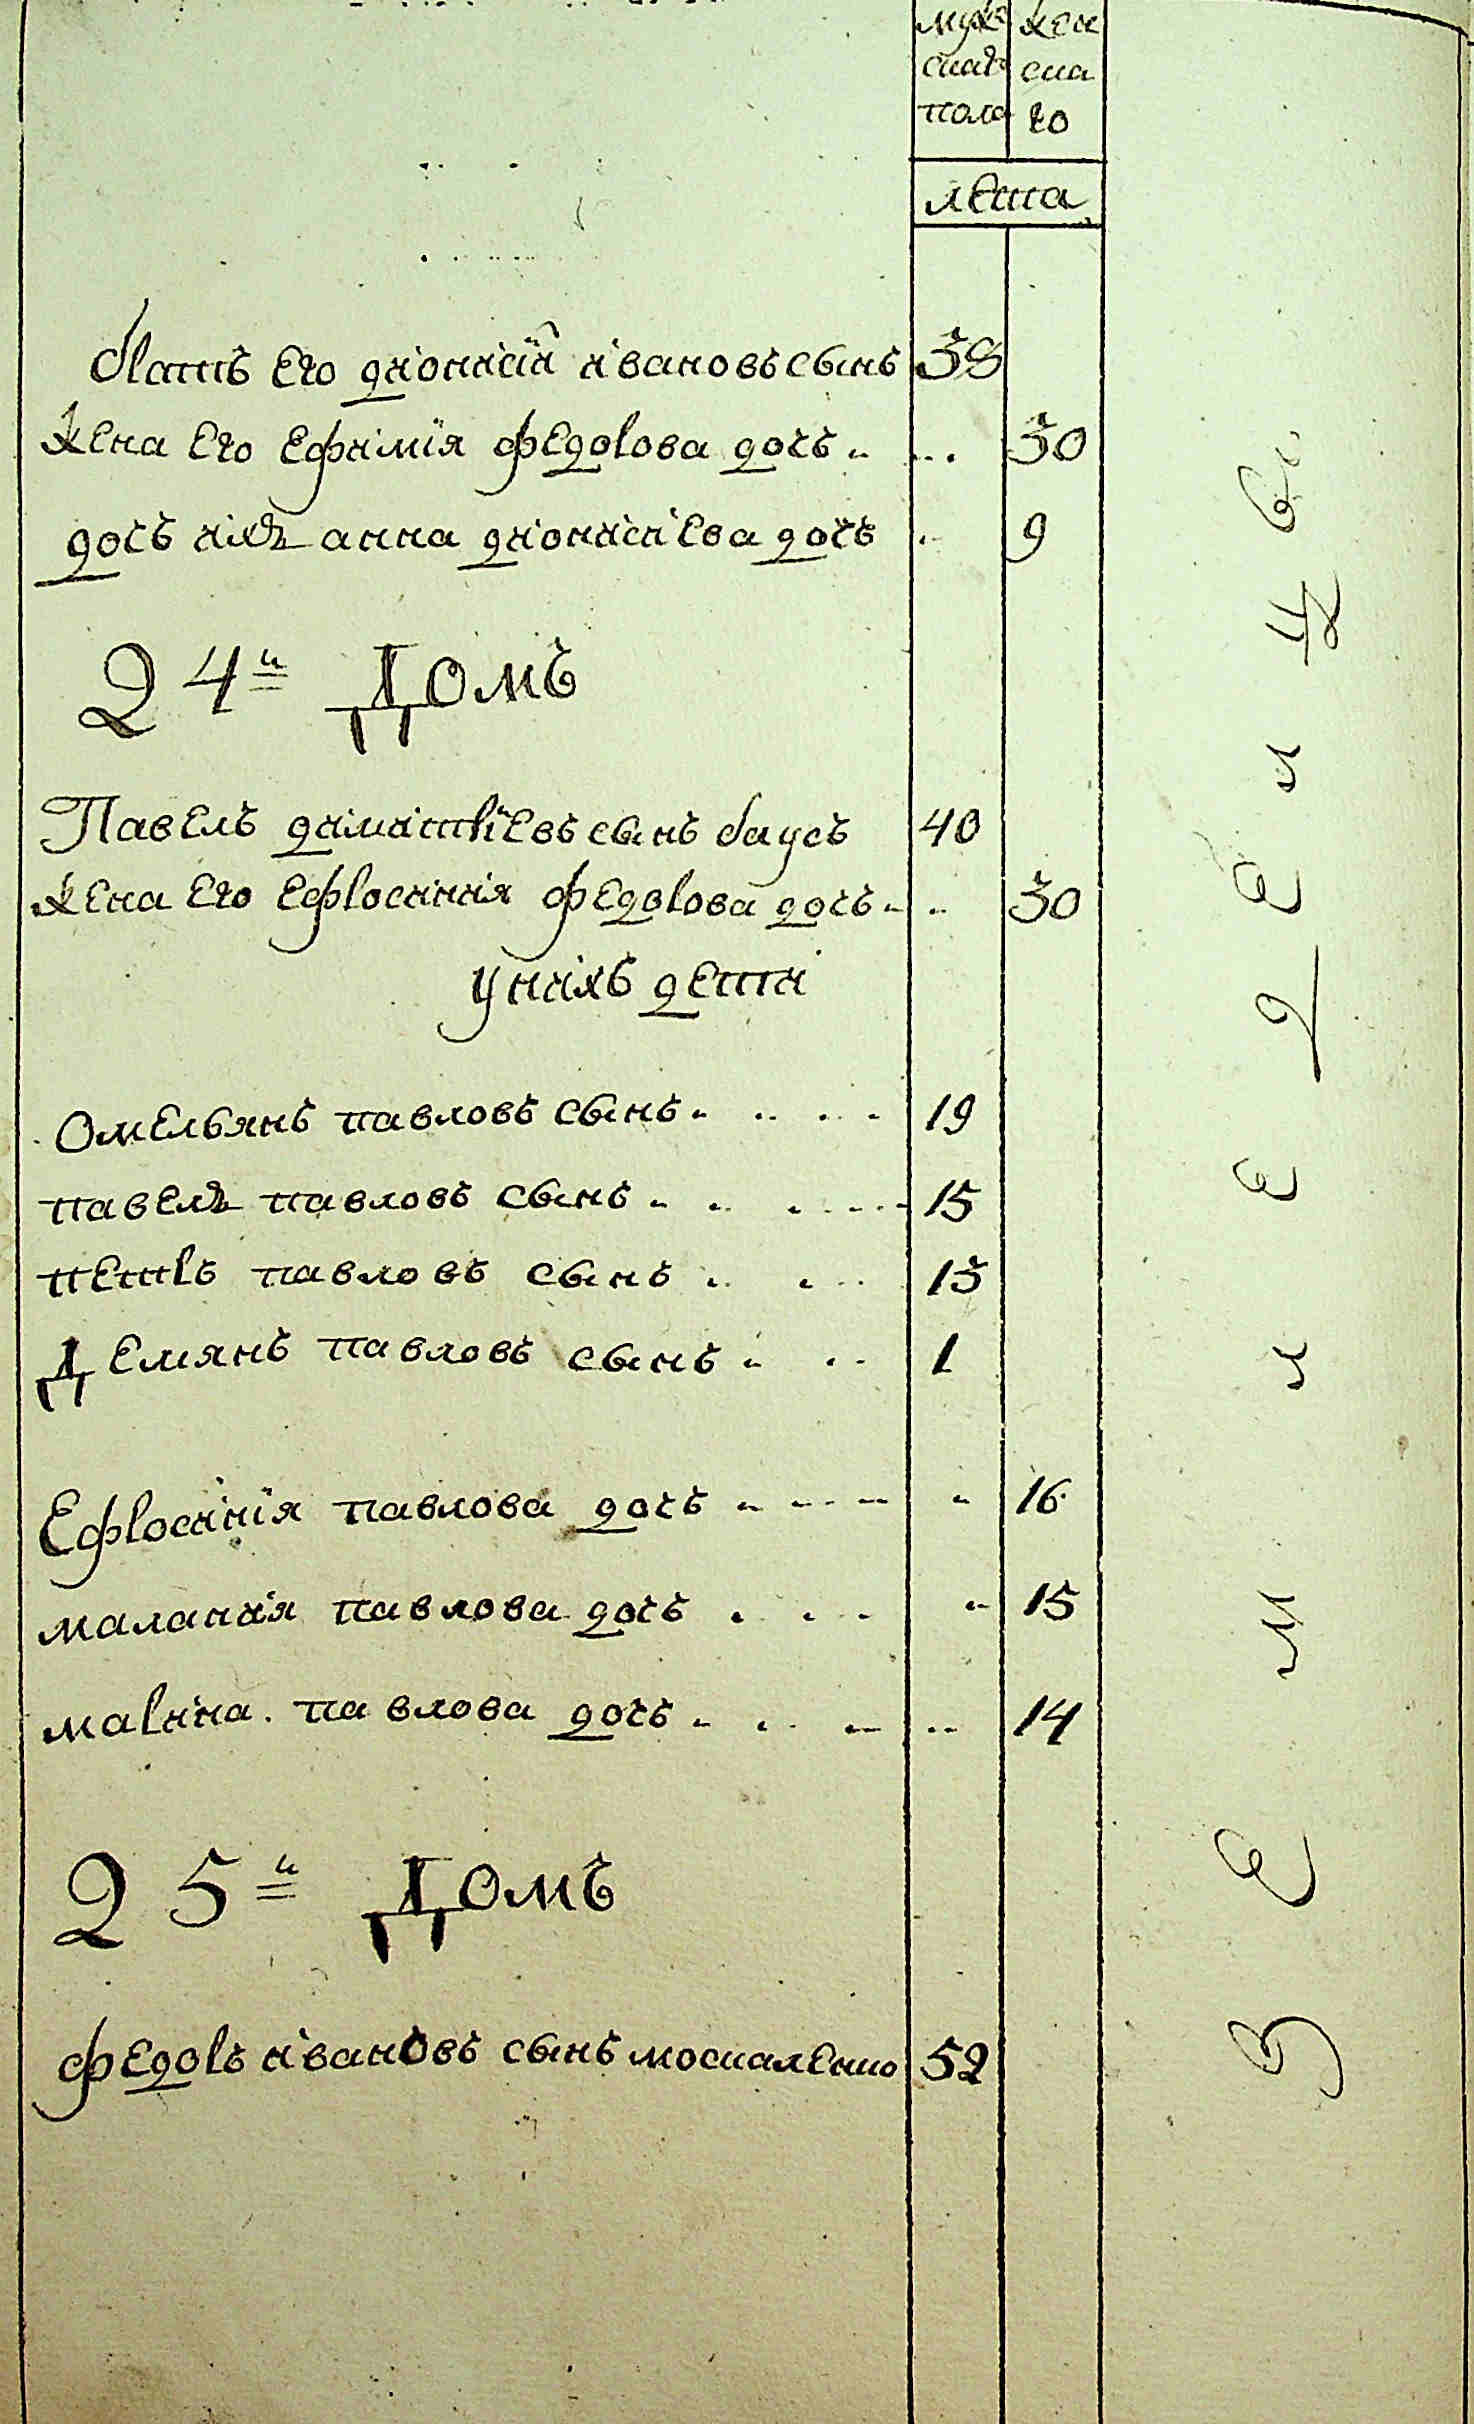 муж жен
скаго ска
пола го
лета
братъ его дионисїй ивановъ сынъ 38
жена его ефимїя федорова дочъ 30
дочъ ихъ анна дионисиева дочъ 9
24й Домъ
Павелъ димитрїевъ сынъ баусъ 40
жена его ефросиния федорова дочъ 30
у нихъ дети
Омельянъ павловъ сынъ 19
павелъ павловъ сынъ 15
петръ павловъ сынъ 13
Демянъ павловъ сынъ 1
Ефросинїя павлова дочъ 16
малания павлова дочъ 15
марина павлова дочъ 14
25й Домъ
федоръ ивановъ сынъ москаленко 52